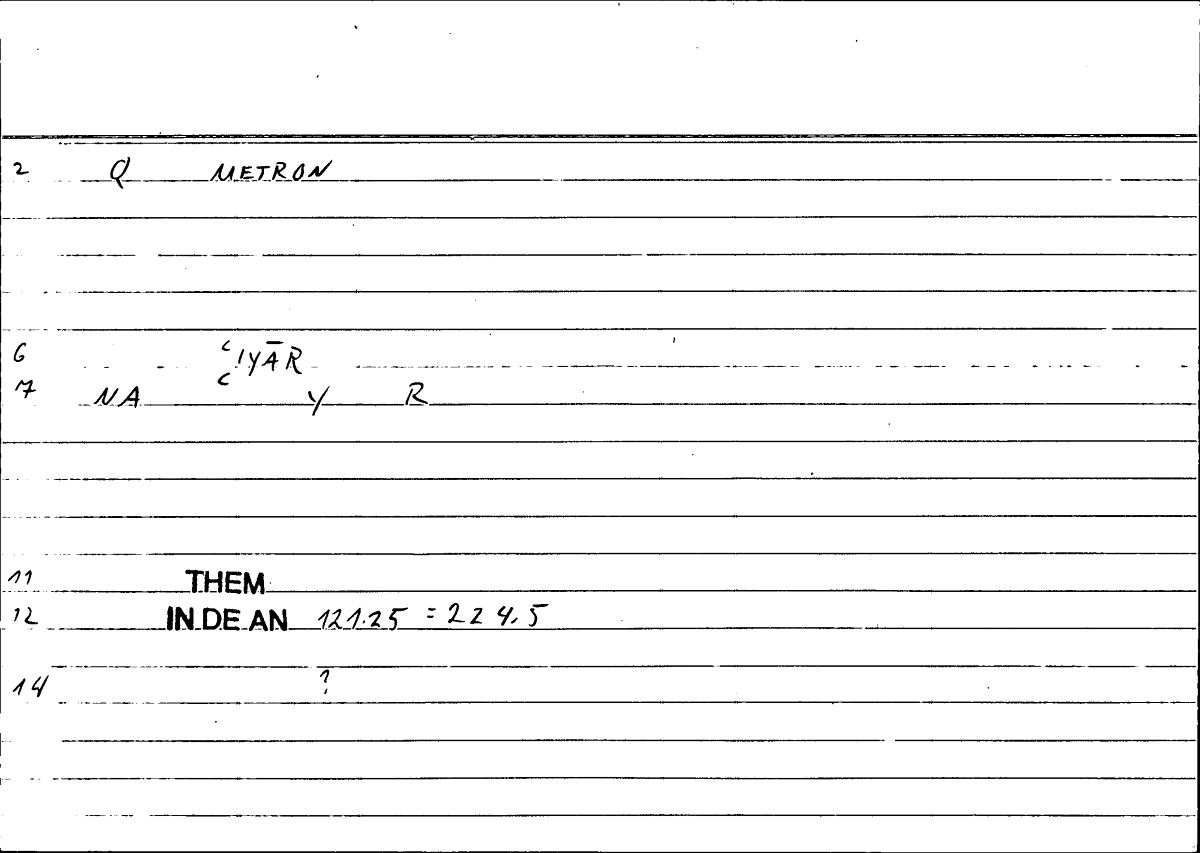 2 Q METRON
6 ʿIYĀR
7 NA Y R
11 THEM
12 IN DE AN 121.25 = 224.5
14 ?